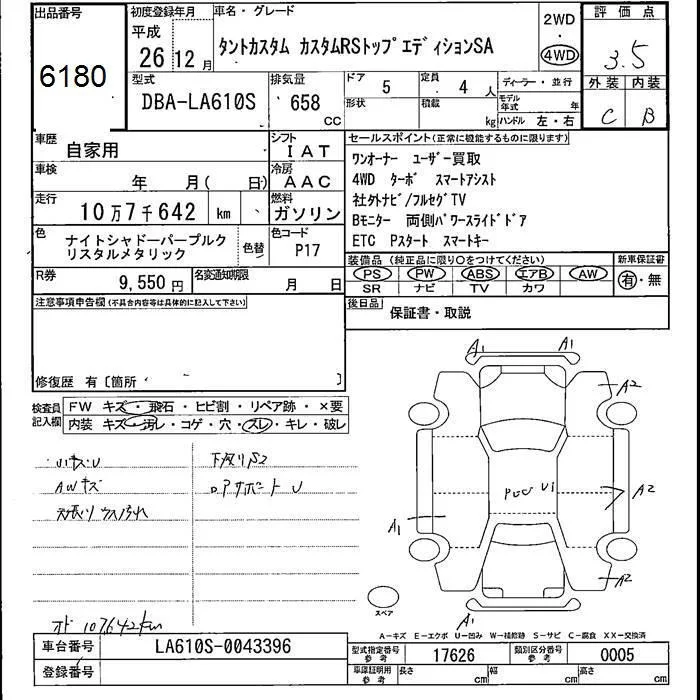 出品番号
6180
初度登録年月
平成
26年 12月
車名・グレード
タントカスタム カスタムRSトップエディションSA
2WD
・
4WD
評価点
3.5
外装 内装
C B
型式
DBA-LA610S
排気量
658
CC
ドア
5
形状
定員
4 人
積載
kg
ディーラー・並行
モデル年式 年
ハンドル 左・右
車歴
自家用
シフト
IAT
車検
年 月( 日)
冷房
AAC
走行
10万7千642 km
燃料
ガソリン
色
ナイトシャドーパープルク
リスタルメタリック
色替
色コード
P17
R券
9,550円
名変通知期限
月 日
セールスポイント(正常に機能するものに限ります)
ワンオーナー ユーザー買取
4WD ターボ スマートアシスト
社外ナビ/フルセグTV
Bモニター 両側パワースライドドア
ETC Pスタート スマートキー
装備品(純正品に限り○をつけてください)
PS PW ABS エアB AW
SR ナビ TV カワ
新車保証書
有・無
後日品
保証書・取説
注意事項申告欄(不具合内容等は具体的に記入して下さい)
修復歴 有〔箇所 〕
検査員
記入欄
FW キズ・飛石・ヒビ割・リペア跡・×要
内装 キズ・汚レ・コゲ・穴・スレ・キレ・破レ
小キズU
AWキズ
天張リウス汚れ
オド 107642km
下廻りS2
ロアサポートU
A1
A1
A2
A2
A2
A1
A1
U1
スペア
A-キズ E-エクボ U-凹み W-補修跡 S-サビ C-腐食 XX-交換済
車台番号
LA610S-0043396
登録番号
型式指定番号
参考
17626
類別区分番号
参考
0005
車庫証明用
参考
長さ cm
幅 cm
高さ cm